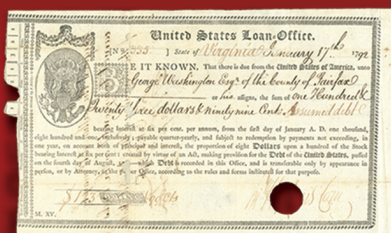 United States Loan-Office.
[No 333 ] State of Virginia January 17th 1792
BE IT KNOWN, That there is due from the United States of America, unto
George Washington Esqr. of the County of Fairfax
or his assigns, the sum of one Hundred &
Twenty three dollars & ninety nine Cents Assumed debt
bearing interest at six per cent. per annum, from the first day of January A. D. one thousand,
eight hundred and one, inclusively, payable quarter-yearly, and subject to redemption by payments not exceeding, in
one year, on account both of principal and interest, the proportion of eight Dollars upon a hundred of the Stock
bearing interest at six per cent. created by virtue of an Act, making provision for the Debt of the United States, passed
on the fourth day of August, Debt is recorded in this Office, and is transferable only by appearance in
person, or by Attorney, at the proper Office, according to the rules and forms instituted for that purpose.
M. XV.